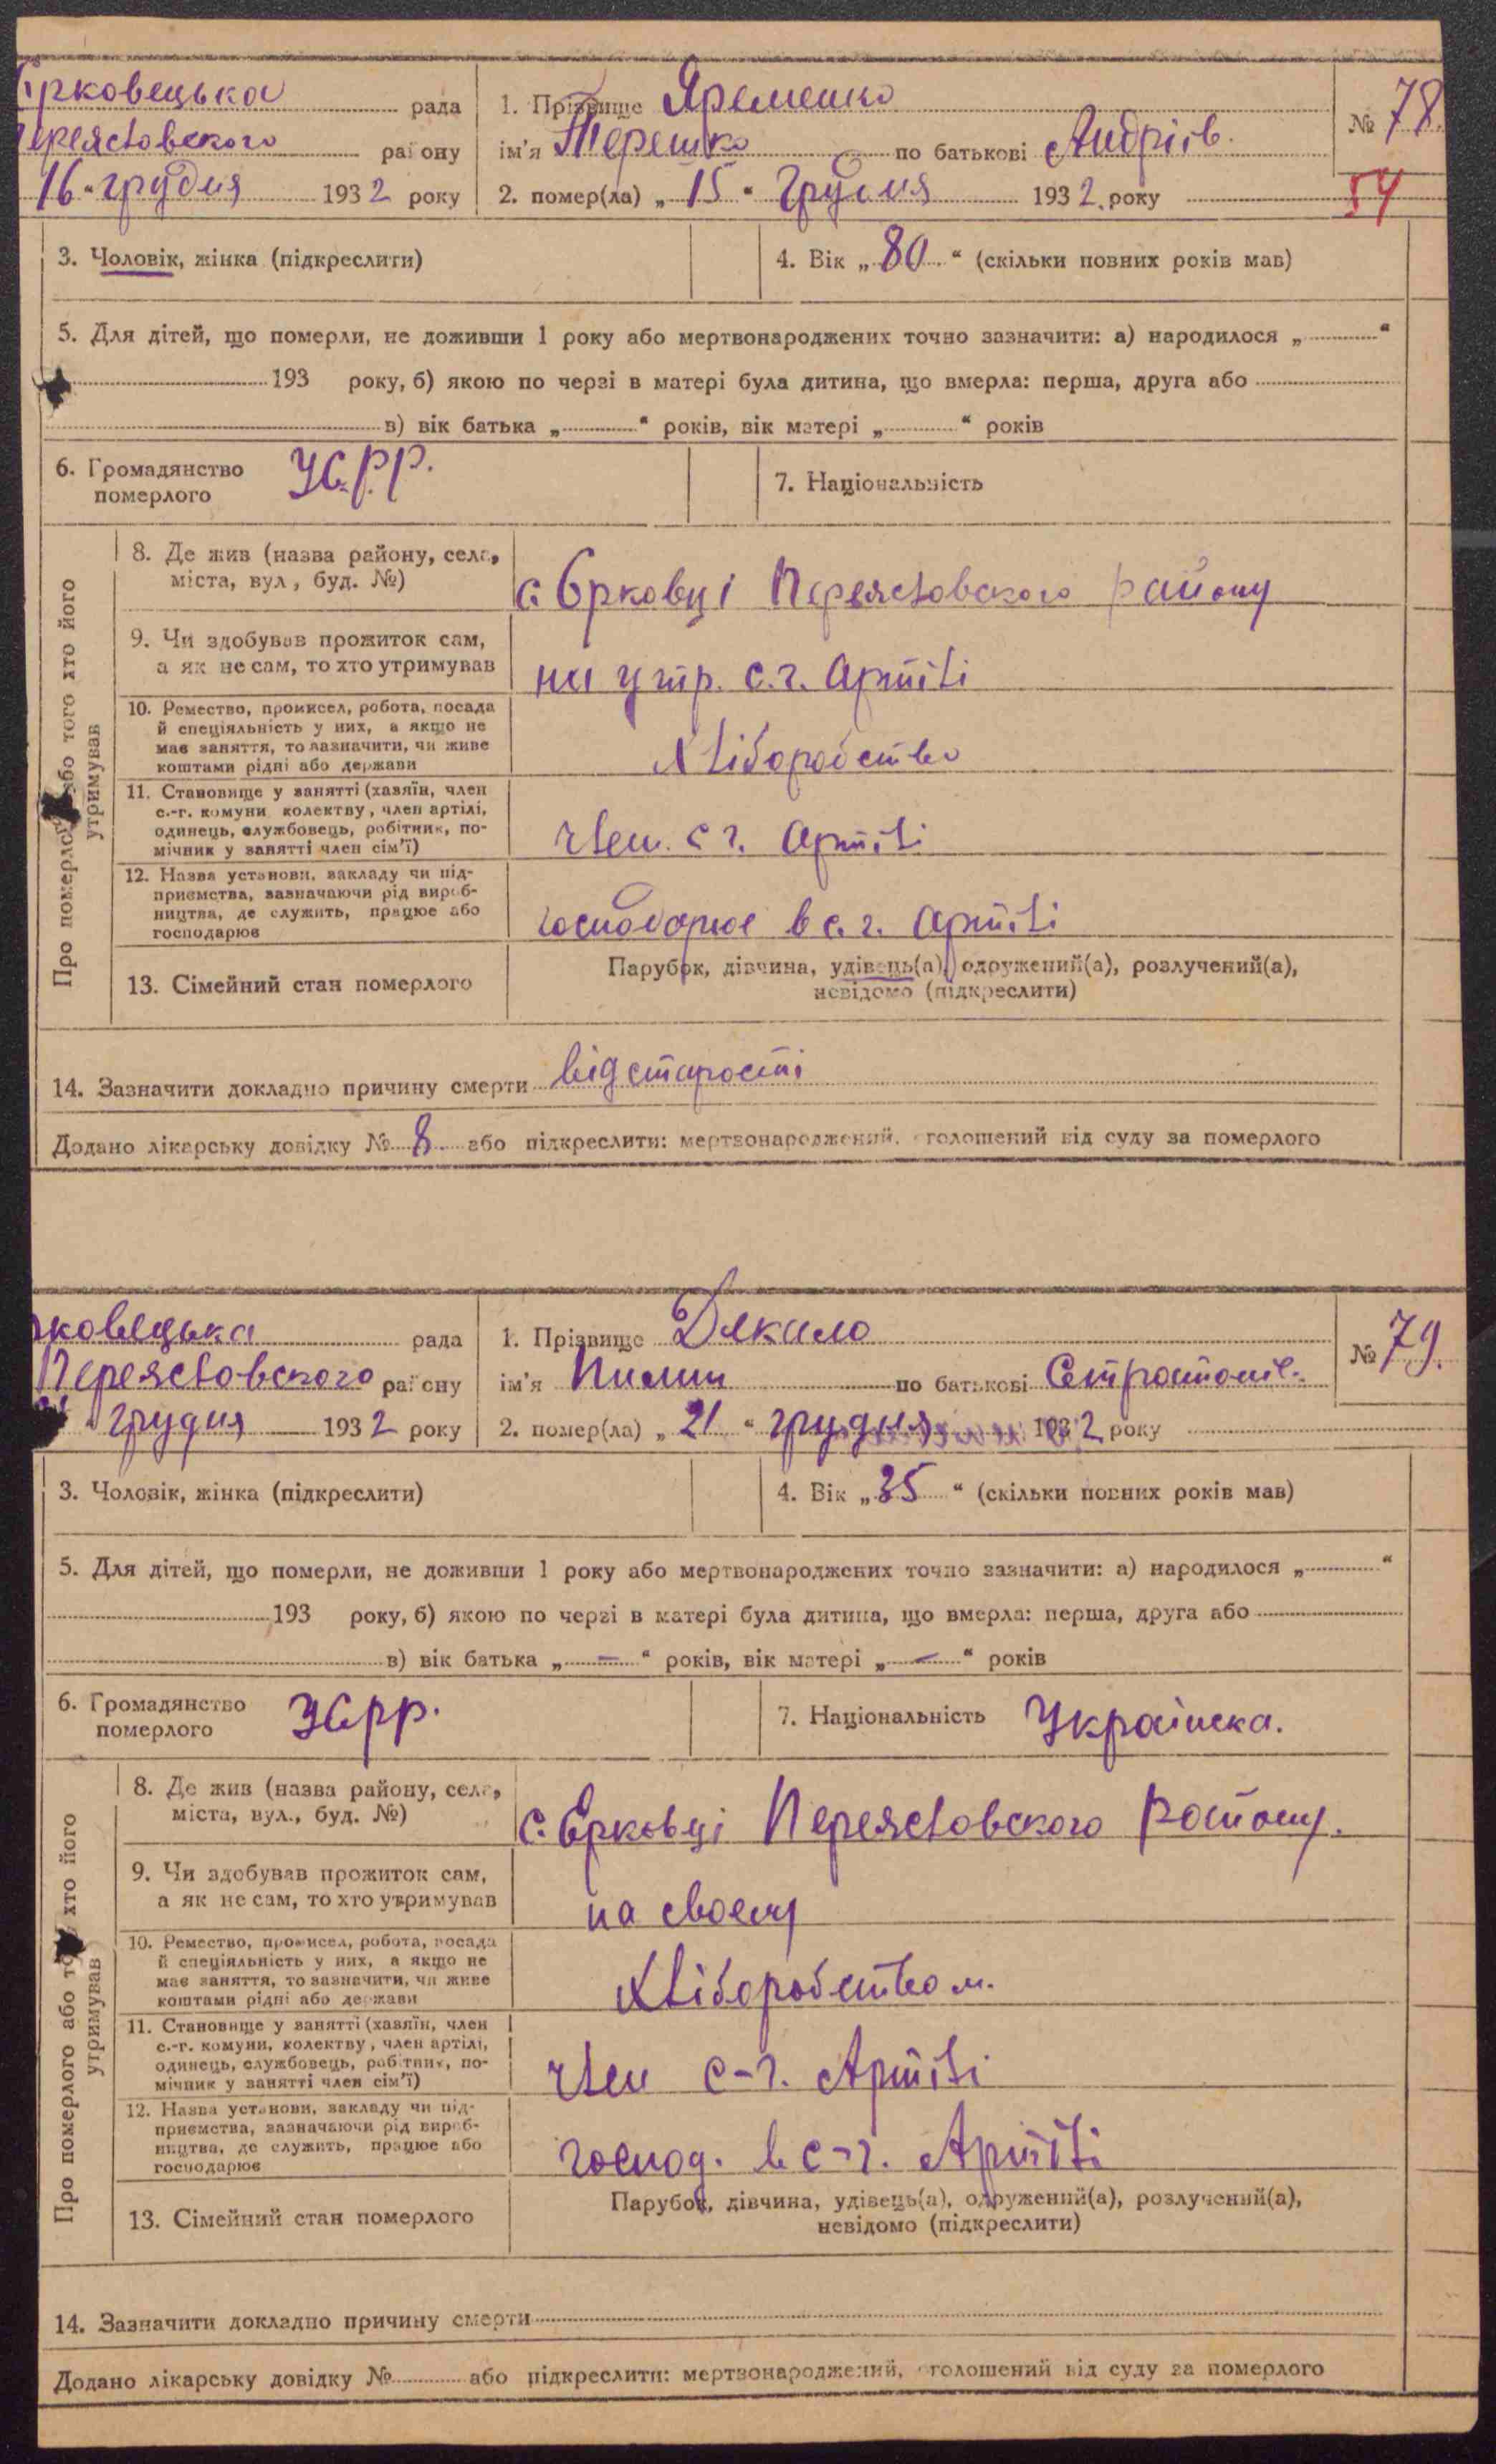 Єрковецька рада
Переяславського району
16 " грудня 1932 року
1. Прізвище Яременко
ім'я Терешко по батькові Андріїв.
2. помер(ла) „ 15 " грудня 1932. року
№ 78.
54
3. Чоловік, жінка (підкреслити)
4. Вік „ 80 " (скільки повних років мав)
5. Для дітей, що померли, не доживши 1 року або мертвонароджених точно зазначити: а) народилося „ "
193 року, б) якою по черзі в матері була дитина, що вмерла: перша, друга або
в) вік батька „ " років, вік матері „ " років
6. Громадянство
померлого
УСРР.
7. Національність
Про померлого або того хто його
утримував
8. Де жив (назва району, села,
міста, вул, буд. №)
с. Єрковці Переяславского району
9. Чи здобував прожиток сам,
а як не сам, то хто утримував
на утр. с.г. артілі
10. Ремество, промисел, робота, посада
й спеціяльність у них, а якщо не
має заняття, то зазначити, чи живе
коштами рідні або держави
Хліборобство
11. Становище у занятті (хазяїн, член
с.-г. комуни колектву, член артілі,
одинець, службовець, робітник, по-
мічник у занятті член сім'ї)
член. с г. артілі
12. Назва установи, закладу чи під-
приємства, зазначаючи рід вироб-
ництва, де служить, працює або
господарює
господарює в с. г. артілі
13. Сімейний стан померлого
Парубок, дівчина, удівець(а), одружений(а), розлучений(а),
невідомо (підкреслити)
14. Зазначити докладно причину смерти від старости
Додано лікарську довідку № 8. або підкреслити: мертвонароджений, оголошений від суду за померлого
рковецька рада
Переяславского району
" грудня 1932 року
1. Прізвище
ім'я Пилип по батькові
2. помер(ла) „ 21 " грудня 1932. року
№ 79.
3. Чоловік, жінка (підкреслити)
4. Вік „ 35 " (скільки повних років мав)
5. Для дітей, що померли, не доживши 1 року або мертвонароджених точно зазначити: а) народилося „ "
193 року, б) якою по черзі в матері була дитина, що вмерла: перша, друга або
в) вік батька „ — " років, вік матері „ — " років
6. Громадянство
померлого
УСРР.
7. Національність Українска.
Про померлого або того хто його
утримував
8. Де жив (назва району, села,
міста, вул., буд. №)
с. Єрковці Переяславского району.
9. Чи здобував прожиток сам,
а як не сам, то хто утримував
на своему
10. Ремество, промисел, робота, посада
й спеціяльність у них, а якщо не
має заняття, то зазначити, чи живе
коштами рідні або держави
Хліборобством.
11. Становище у занятті (хазяїн, член
с.-г. комуни, колектву, член артілі,
одинець, службовець, робітник, по-
мічник у занятті член сім'ї)
член с-г. Артілі
12. Назва установи, закладу чи під-
приємства, зазначаючи рід вироб-
ництва, де служить, працює або
господарює
господ. в с-г. Артілі
13. Сімейний стан померлого
Парубок, дівчина, удівець(а), одружений(а), розлучений(а),
невідомо (підкреслити)
14. Зазначити докладно причину смерти
Додано лікарську довідку № або підкреслити: мертвонароджений, оголошений від суду за померлого